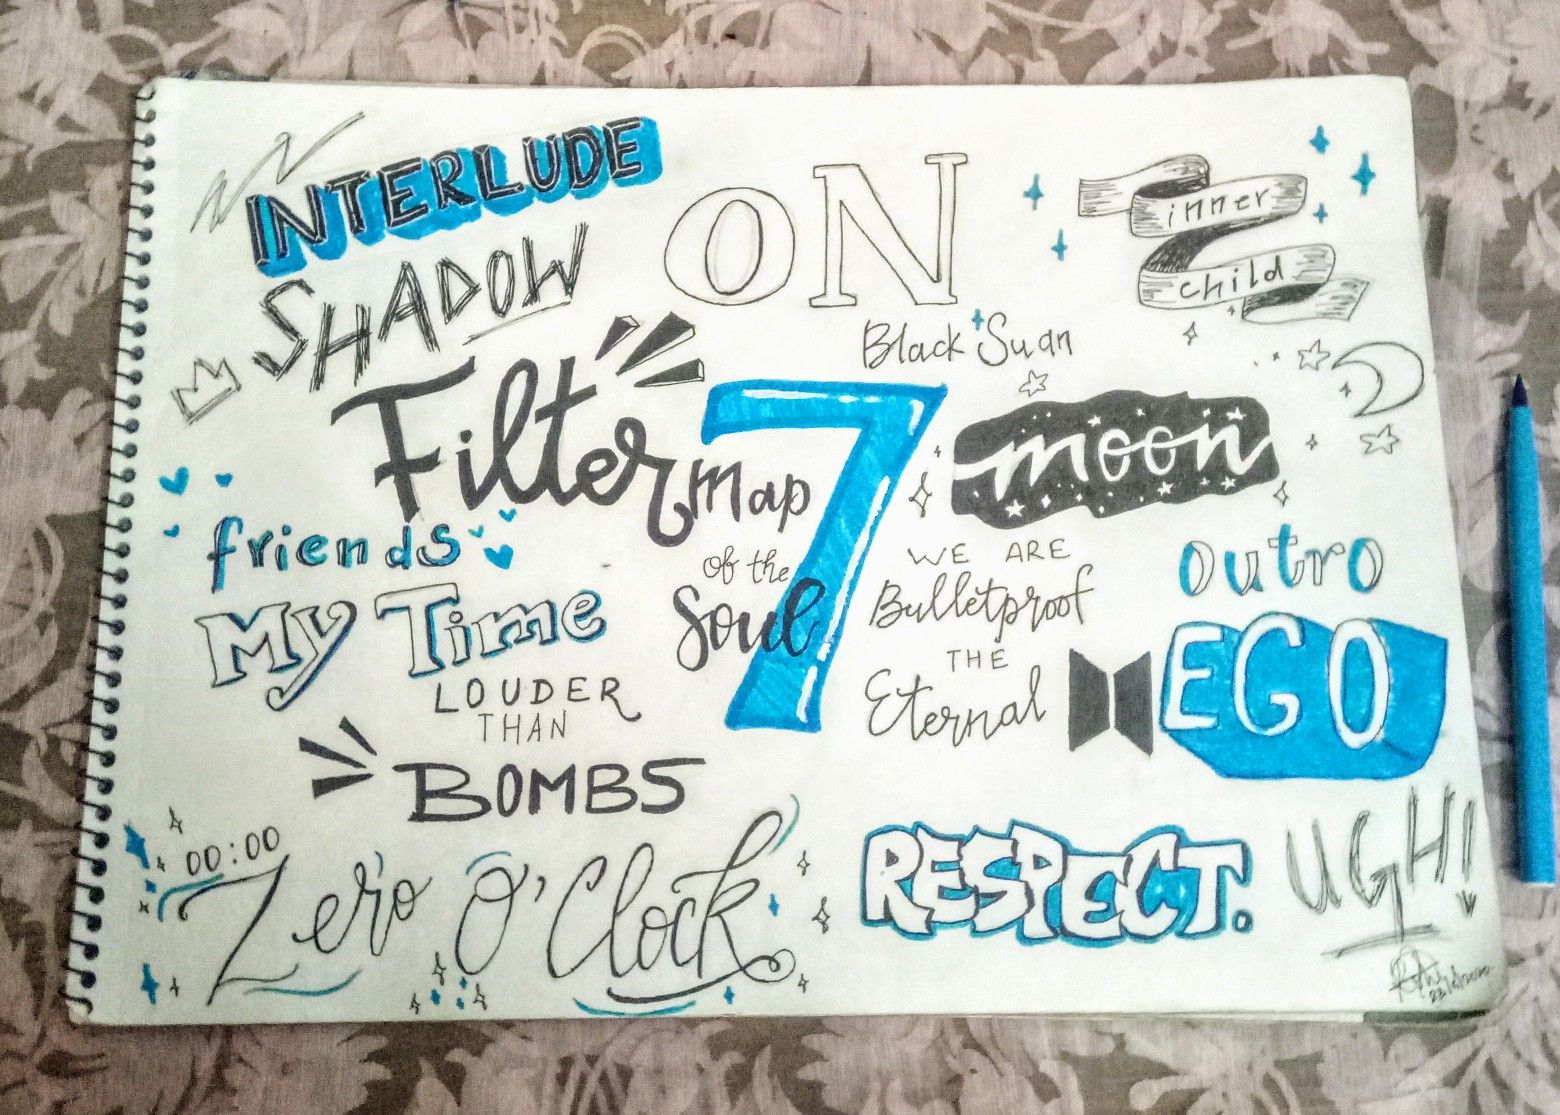 INTERLUDE
SHADOW
ON
inner
child
Black Swan
Filter
7
map
of the
Soul
moon
friends
My Time
WE ARE
Bulletproof
THE
Eternal
outro
EGO
LOUDER
THAN
BOMBS
00:00
Zero O'Clock
RESPECT.
UGH!